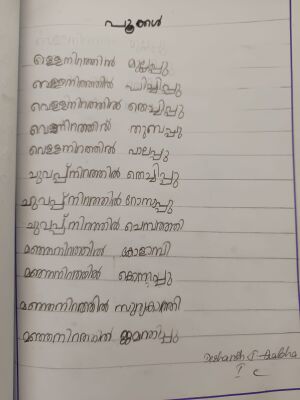 പൂക്കൾ
വെള്ളനിറത്തിൽ മുല്ലപ്പൂ
വെള്ളനിറത്തിൽ പിച്ചിപ്പൂ
വെള്ളനിറത്തിൽ തെച്ചിപ്പൂ
വെള്ളനിറത്തിൽ തുമ്പപ്പൂ
വെള്ളനിറത്തിൽ പാലപ്പൂ
ചുവപ്പ്നിറത്തിൽ തെച്ചിപ്പൂ
ചുവപ്പ്നിറത്തിൽ റോസപ്പൂ
ചുവപ്പ്നിറത്തിൽ ചെമ്പരത്തി
മഞ്ഞനിറത്തിൽ കോളാമ്പി
മഞ്ഞനിറത്തിൽ കൊന്നപ്പൂ
മഞ്ഞനിറത്തിൽ സൂര്യകാന്തി
മഞ്ഞനിറത്തിൽ ജമന്തിപ്പൂ
I C